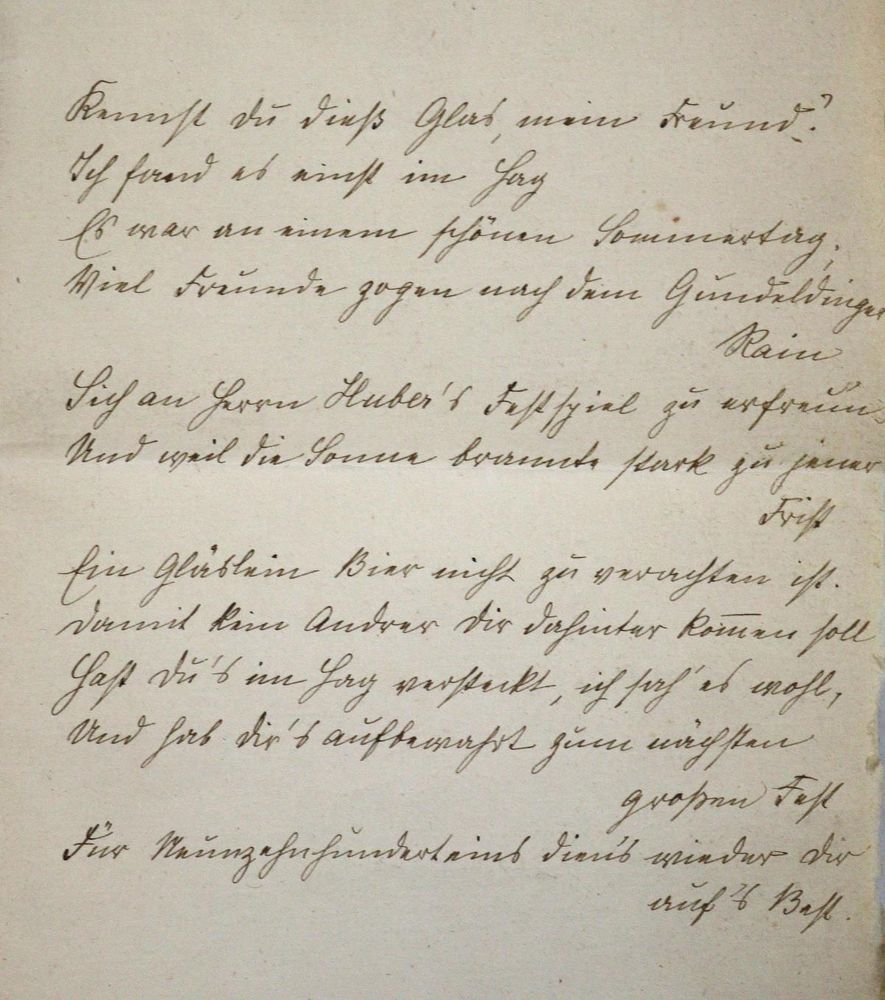 Kennst du dieß Glas, mein Freund?
Ich fand es einst im Hag
Es war an einem schönen Sommertag,
Viel Freunde zogen nach dem Gundeldinger
Rain
Sich an Herrn Huber's Festspiel zu erfreun
Und weil die Sonne brannte stark zu jener
Frist
Ein Gläslein Bier nicht zu verachten ist.
Damit kein Andrer dir dahinter kom̅en soll
Hast du's im Hag versteckt, ich sah' es wohl,
Und hab dir's aufbewahrt zum nächsten
großen Fest
Für Neunzehnhunderteins dien's wieder dir
auf's Best.